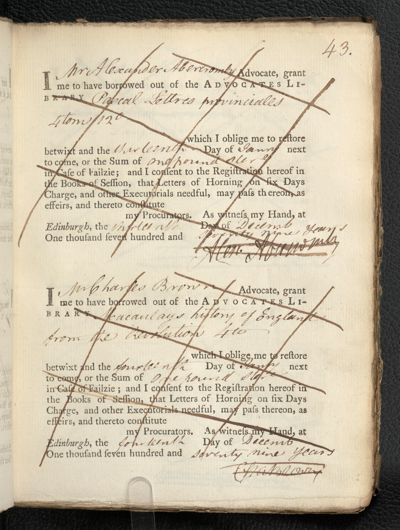 43.
I Mr Alexander Abercromby Advocate, grant
me to have borrowed out of the ADVOCATES LI-
BRARY Pascal Lettres provinciales
4 tom 12o
which I oblige me to restore
betwixt and the Day of Janry next
to come, or the Sum of one pound ster g
in Case of Failzie; and I consent to the Registration hereof in
the Books of Session, that Letters of Horning on six Days
Charge, and other Executorials needful, may pass thereon, as
effeirs, and thereto constitute
my Procurators. As witness my Hand, at
Edinburgh, the Day of Decemb
One thousand seven hundred and seventy nine Years
Alexr Abercromby
I Mr Charles Brown Advocate, grant
me to have borrowed out of the ADVOCATES LI-
BRARY Macaulay's history of England
from the Revolution 4to
which I oblige me to restore
betwixt and the fourteenth Day of Janry next
to come, or the Sum of One pound ster
in Case of Failzie; and I consent to the Registration hereof in
the Books of Session, that Letters of Horning on six Days
Charge, and other Executorials needful, may pass thereon, as
effeirs, and thereto constitute
my Procurators. As witness my Hand, at
Edinburgh, the fourteenth Day of Decemb
One thousand seven hundred and seventy nine years
Chas Brown